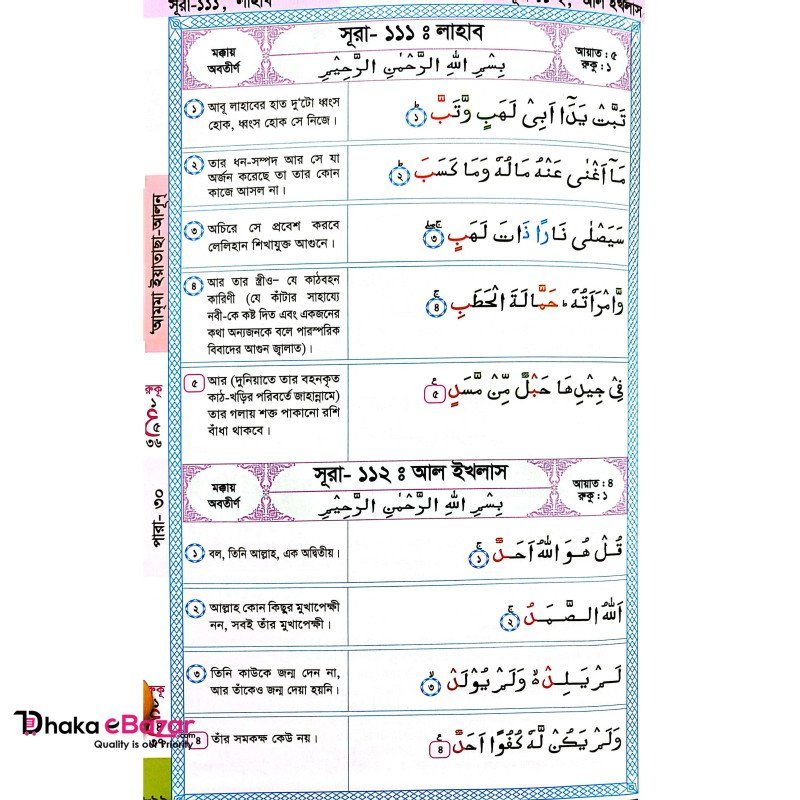 সূরা-১১১, লাহাব
আল ইখলাস
সূরা- ১১১ ঃ লাহাব
মক্কায়
অবতীর্ণ
بِسْمِ اللّٰهِ الرَّحْمٰنِ الرَّحِيْمِ
আয়াত : ৫
রুকু : ১
১ আবূ লাহাবের হাত দু'টো ধ্বংস
হোক, ধ্বংস হোক সে নিজে।
تَبَّتْ يَدَآ اَبِىْ لَهَبٍ وَّتَبَّ ১
২ তার ধন-সম্পদ আর সে যা
অর্জন করেছে তা তার কোন
কাজে আসল না।
مَآ اَغْنٰى عَنْهُ مَالُهٗ وَمَا كَسَبَ ২
৩ অচিরে সে প্রবেশ করবে
লেলিহান শিখাযুক্ত আগুনে।
سَيَصْلٰى نَارًا ذَاتَ لَهَبٍ ৩
৪ আর তার স্ত্রীও– যে কাঠবহন
কারিণী (যে কাঁটার সাহায্যে
নবী-কে কষ্ট দিত এবং একজনের
কথা অন্যজনকে বলে পারস্পরিক
বিবাদের আগুন জ্বালাত)।
وَّامْرَاَتُهٗ ؕ حَمَّالَةَ الْحَطَبِ ৪
৫ আর (দুনিয়াতে তার বহনকৃত
কাঠ-খড়ির পরিবর্তে জাহান্নামে)
তার গলায় শক্ত পাকানো রশি
বাঁধা থাকবে।
فِىْ جِيْدِهَا حَبْلٌ مِّنْ مَّسَدٍ ৫
সূরা- ১১২ ঃ আল ইখলাস
মক্কায়
অবতীর্ণ
بِسْمِ اللّٰهِ الرَّحْمٰنِ الرَّحِيْمِ
আয়াত : ৪
রুকু : ১
১ বল, তিনি আল্লাহ, এক অদ্বিতীয়।
قُلْ هُوَ اللّٰهُ اَحَدٌ ১
২ আল্লাহ কোন কিছুর মুখাপেক্ষী
নন, সবই তাঁর মুখাপেক্ষী।
اَللّٰهُ الصَّمَدُ ২
৩ তিনি কাউকে জন্ম দেন না,
আর তাঁকেও জন্ম দেয়া হয়নি।
لَمْ يَلِدْ ۙ وَلَمْ يُوْلَدْ ৩
৪ তাঁর সমকক্ষ কেউ নয়।
وَلَمْ يَكُنْ لَّهٗ كُفُوًا اَحَدٌ ৪
'আম্মা ইয়াতাছা-আলূন্
রুকূ
পারা- ৩০
রুকূ
Dhaka eBazar
Quality is our Priority